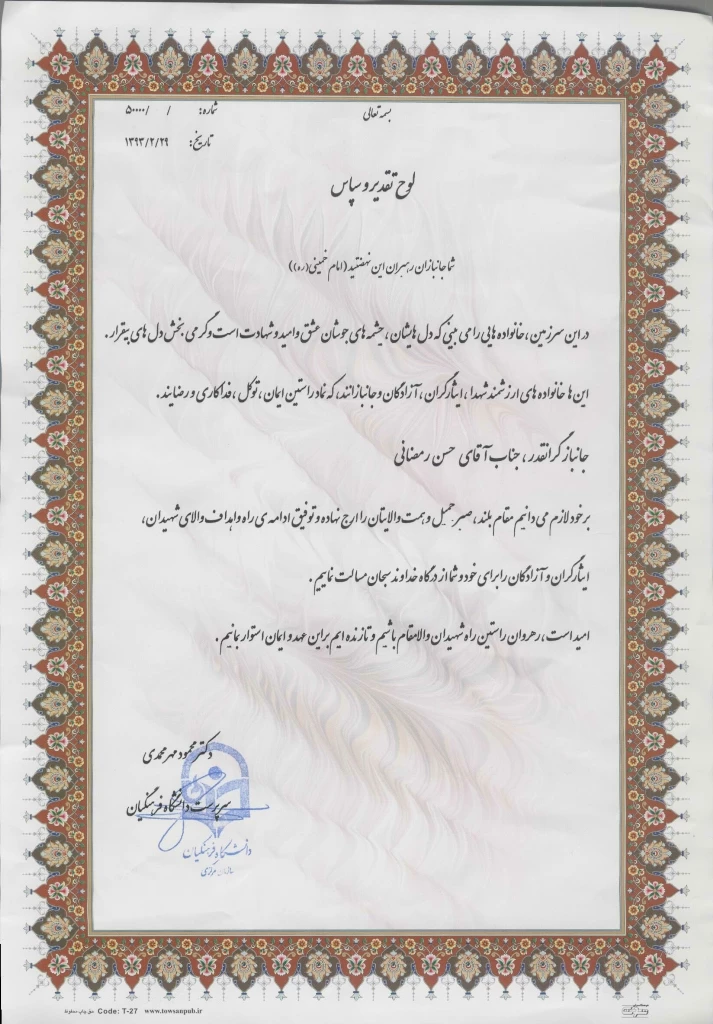 بسمه تعالی
شماره: / /۵۰۰۰۰
تاریخ: ۱۳۹۳/۲/۲۹
لوح تقدیر و سپاس
شما جانبازان رهبران این نهضتید (امام خمینی(ره))
در این سرزمین ، خانواده هایی را می بینی که دل هایشان ، چشمه های جوشان عشق و امید و شهادت است و گرمی بخش دل های بیقرار .
این ها خانواده های ارزشمند شهدا ، ایثارگران ، آزادگان و جانبازانند، که نماد راستین ایمان ، توکل ، فداکاری و رضایند .
جانباز گرانقدر ، جناب آقای حسن رمضانی
بر خود لازم می دانیم مقام بلند ، صبر جمیل و همت والایتان را ارج نهاده و توفیق ادامه ی راه و اهداف والای شهیدان،
ایثارگران و آزادگان را برای خود و شما از درگاه خداوند سبحان مسالت نماییم .
امید است ، رهروان راستین راه شهیدان والامقام باشیم و تا زنده ایم بر این عهد و ایمان استوار بمانیم .
دکتر محمود مهرمحمدی
سرپرست دانشگاه فرهنگیان
دانشگاه فرهنگیان
سازمان مرکزی
Code: T-27 www.towsanpub.ir